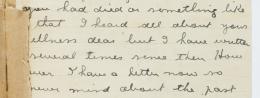 you had died or something like
that I heard all about your
illness dear but I have written
several times since then How
ever I have a letter now so
never mind about the past